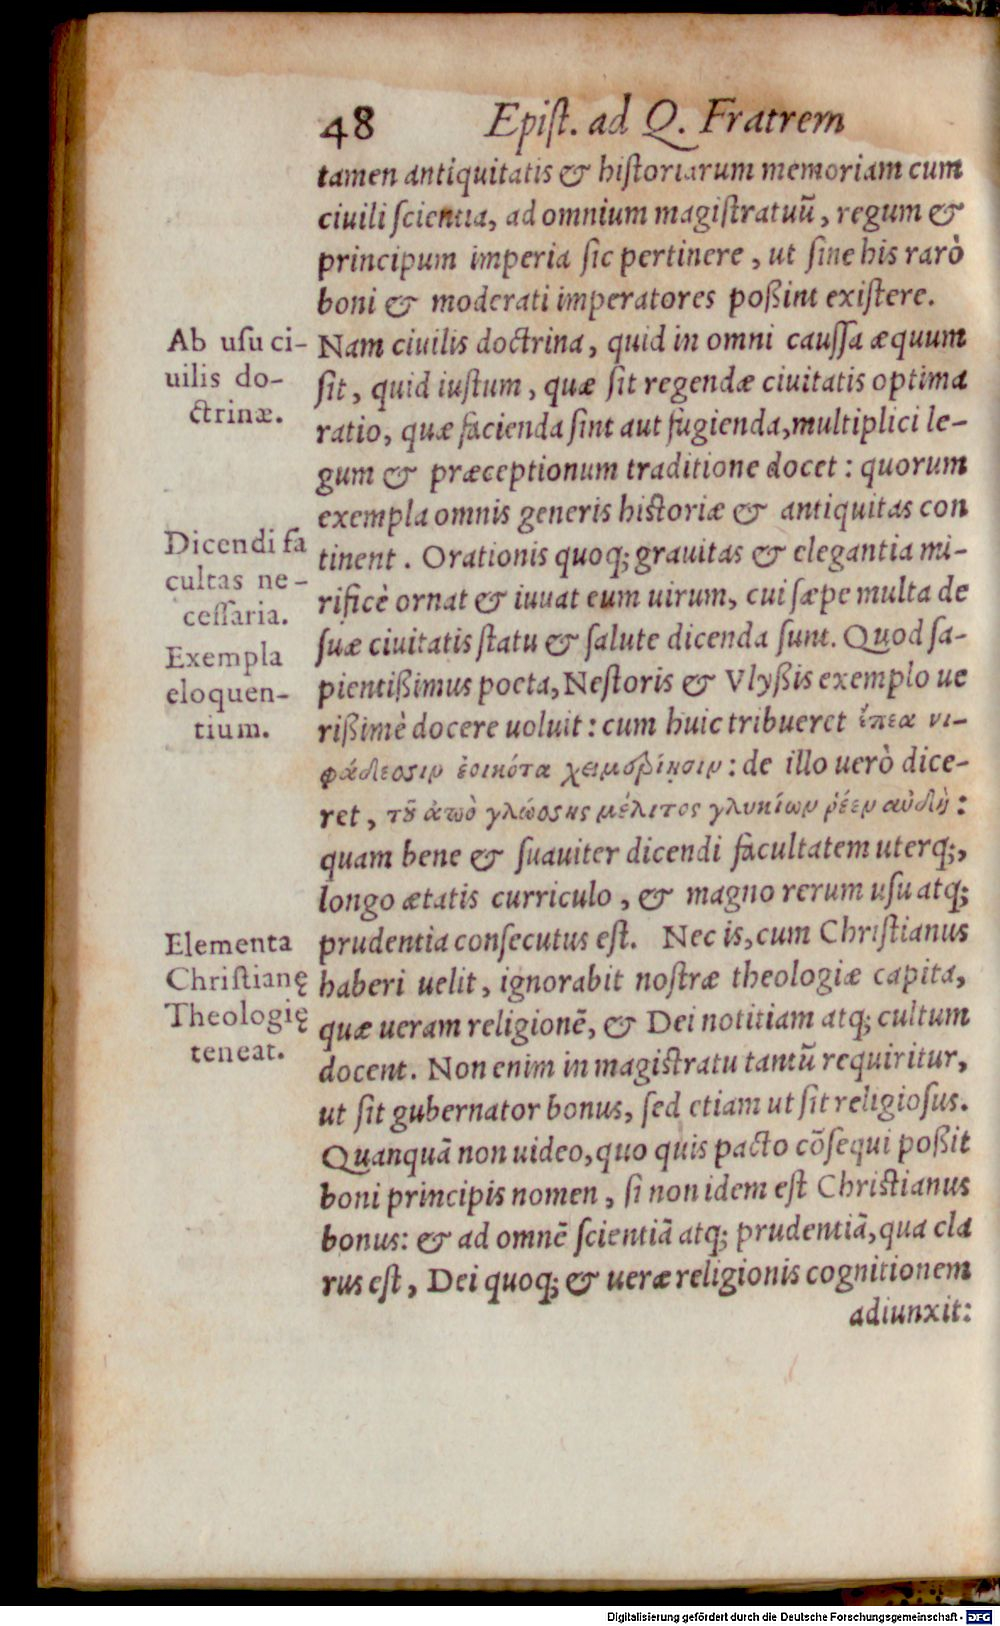 48 Epiſt. ad Q. Fratrem
tamen antiquitatis & hiſtoriarum memoriam cum
ciuili ſcientia, ad omnium magiſtratuũ, regum &
principum imperia ſic pertinere, ut ſine his rarò
boni & moderati imperatores poßint exiſtere.
Ab uſu ci-
uilis do-
ctrinæ.
Nam ciuilis doctrina, quid in omni cauſſa æquum
ſit, quid iuſtum, quæ ſit regendæ ciuitatis optima
ratio, quæ facienda ſint aut fugienda, multiplici le-
gum & præceptionum traditione docet: quorum
exempla omnis generis hiſtoriæ & antiquitas con
Dicendi fa
cultas ne-
ceſſaria.
tinent. Orationis quoq; grauitas & elegantia mi-
rificè ornat & iuuat eum uirum, cui ſæpe multa de
ſuæ ciuitatis ſtatu & ſalute dicenda ſunt. Quod ſa-
Exempla
eloquen-
tium.
pientißimus poeta, Neſtoris & Vlyßis exemplo ue
rißimè docere uoluit: cum huic tribueret ἔπεα νι-
φάδεσσιν ἐοικότα χειμερίησιν: de illo uerò dice-
ret, τοῦ ἀπὸ γλώσσης μέλιτος γλυκίων ῥέεν αὐδὴ:
quam bene & ſuauiter dicendi facultatem uterq;,
longo ætatis curriculo, & magno rerum uſu atq;
Elementa
Chriſtianę
Theologię
teneat.
prudentia conſecutus eſt. Nec is, cum Chriſtianus
haberi uelit, ignorabit noſtræ theologiæ capita,
quæ ueram religionẽ, & Dei notitiam atq; cultum
docent. Non enim in magiſtratu tantũ requiritur,
ut ſit gubernator bonus, ſed etiam ut ſit religioſus.
Quanquã non uideo, quo quis pacto cõſequi poßit
boni principis nomen, ſi non idem eſt Chriſtianus
bonus: & ad omnẽ ſcientiã atq; prudentiã, qua cla
rus eſt, Dei quoq; & ueræ religionis cognitionem
adiunxit:
Digitalisierung gefördert durch die Deutsche Forschungsgemeinschaft - DFG